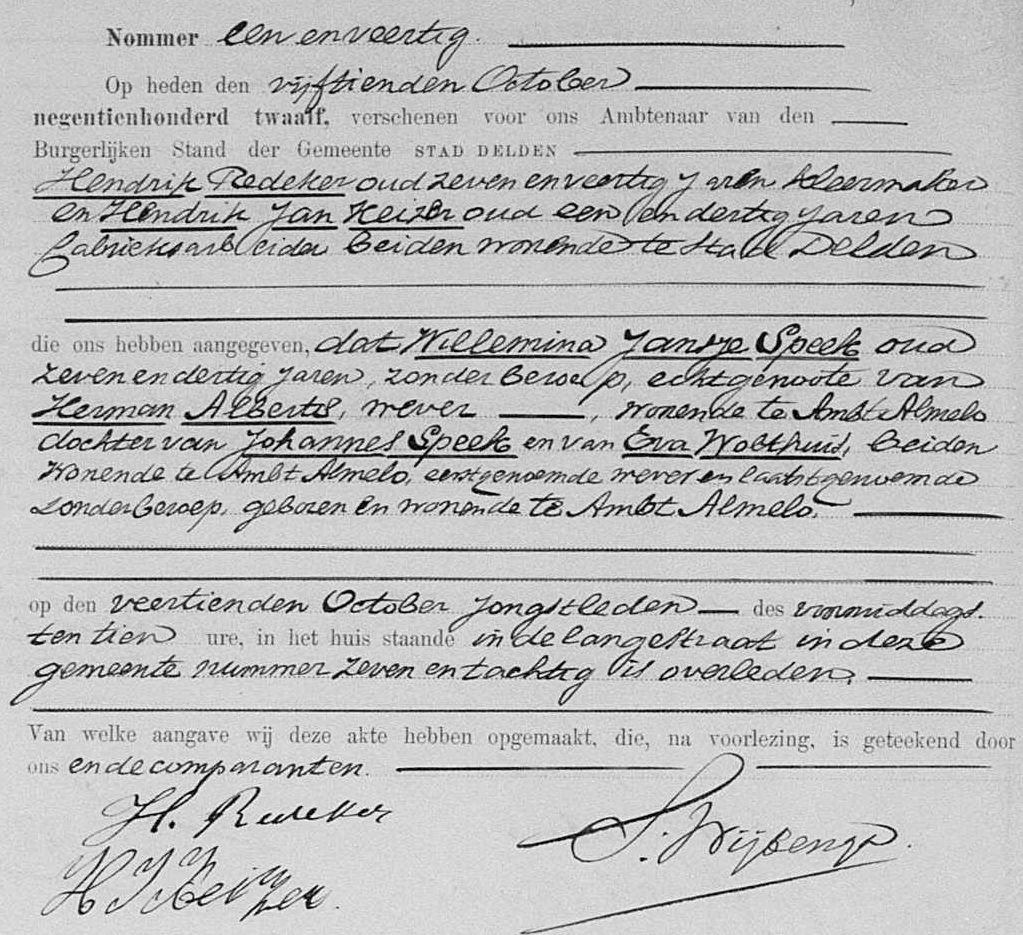 Nommer een en veertig.
Op heden den vijftienden October
negentienhonderd twaalf, verschenen voor ons Ambtenaar van den
Burgerlijken Stand der Gemeente STAD DELDEN
Hendrik Redeker oud zeven en veertig jaren kleermaker
en Hendrik Jan Keizer oud een en dertig jaren
fabrieksarbeider beiden wonende te Stad Delden
die ons hebben aangegeven, dat Willemina Jantje Speek oud
zeven en dertig jaren, zonder beroep, echtgenoote van
Herman Alberts, wever, wonende te Ambt Almelo
dochter van Johannes Speek en van Eva Wolthuis, beiden
wonende te Ambt Almelo, eerstgenoemde wever en laatstgenoemde
zonder beroep, geboren en wonende te Ambt Almelo,
op den veertienden October jongstleden des voormiddags
ten tien ure, in het huis staande in de langestraat in deze
gemeente nummer zeven en tachtig is overleden.
Van welke aangave wij deze akte hebben opgemaakt, die, na voorlezing, is geteekend door
ons en de comparanten.
H. Redeker
S. Wijbenga.
H J Keizer.